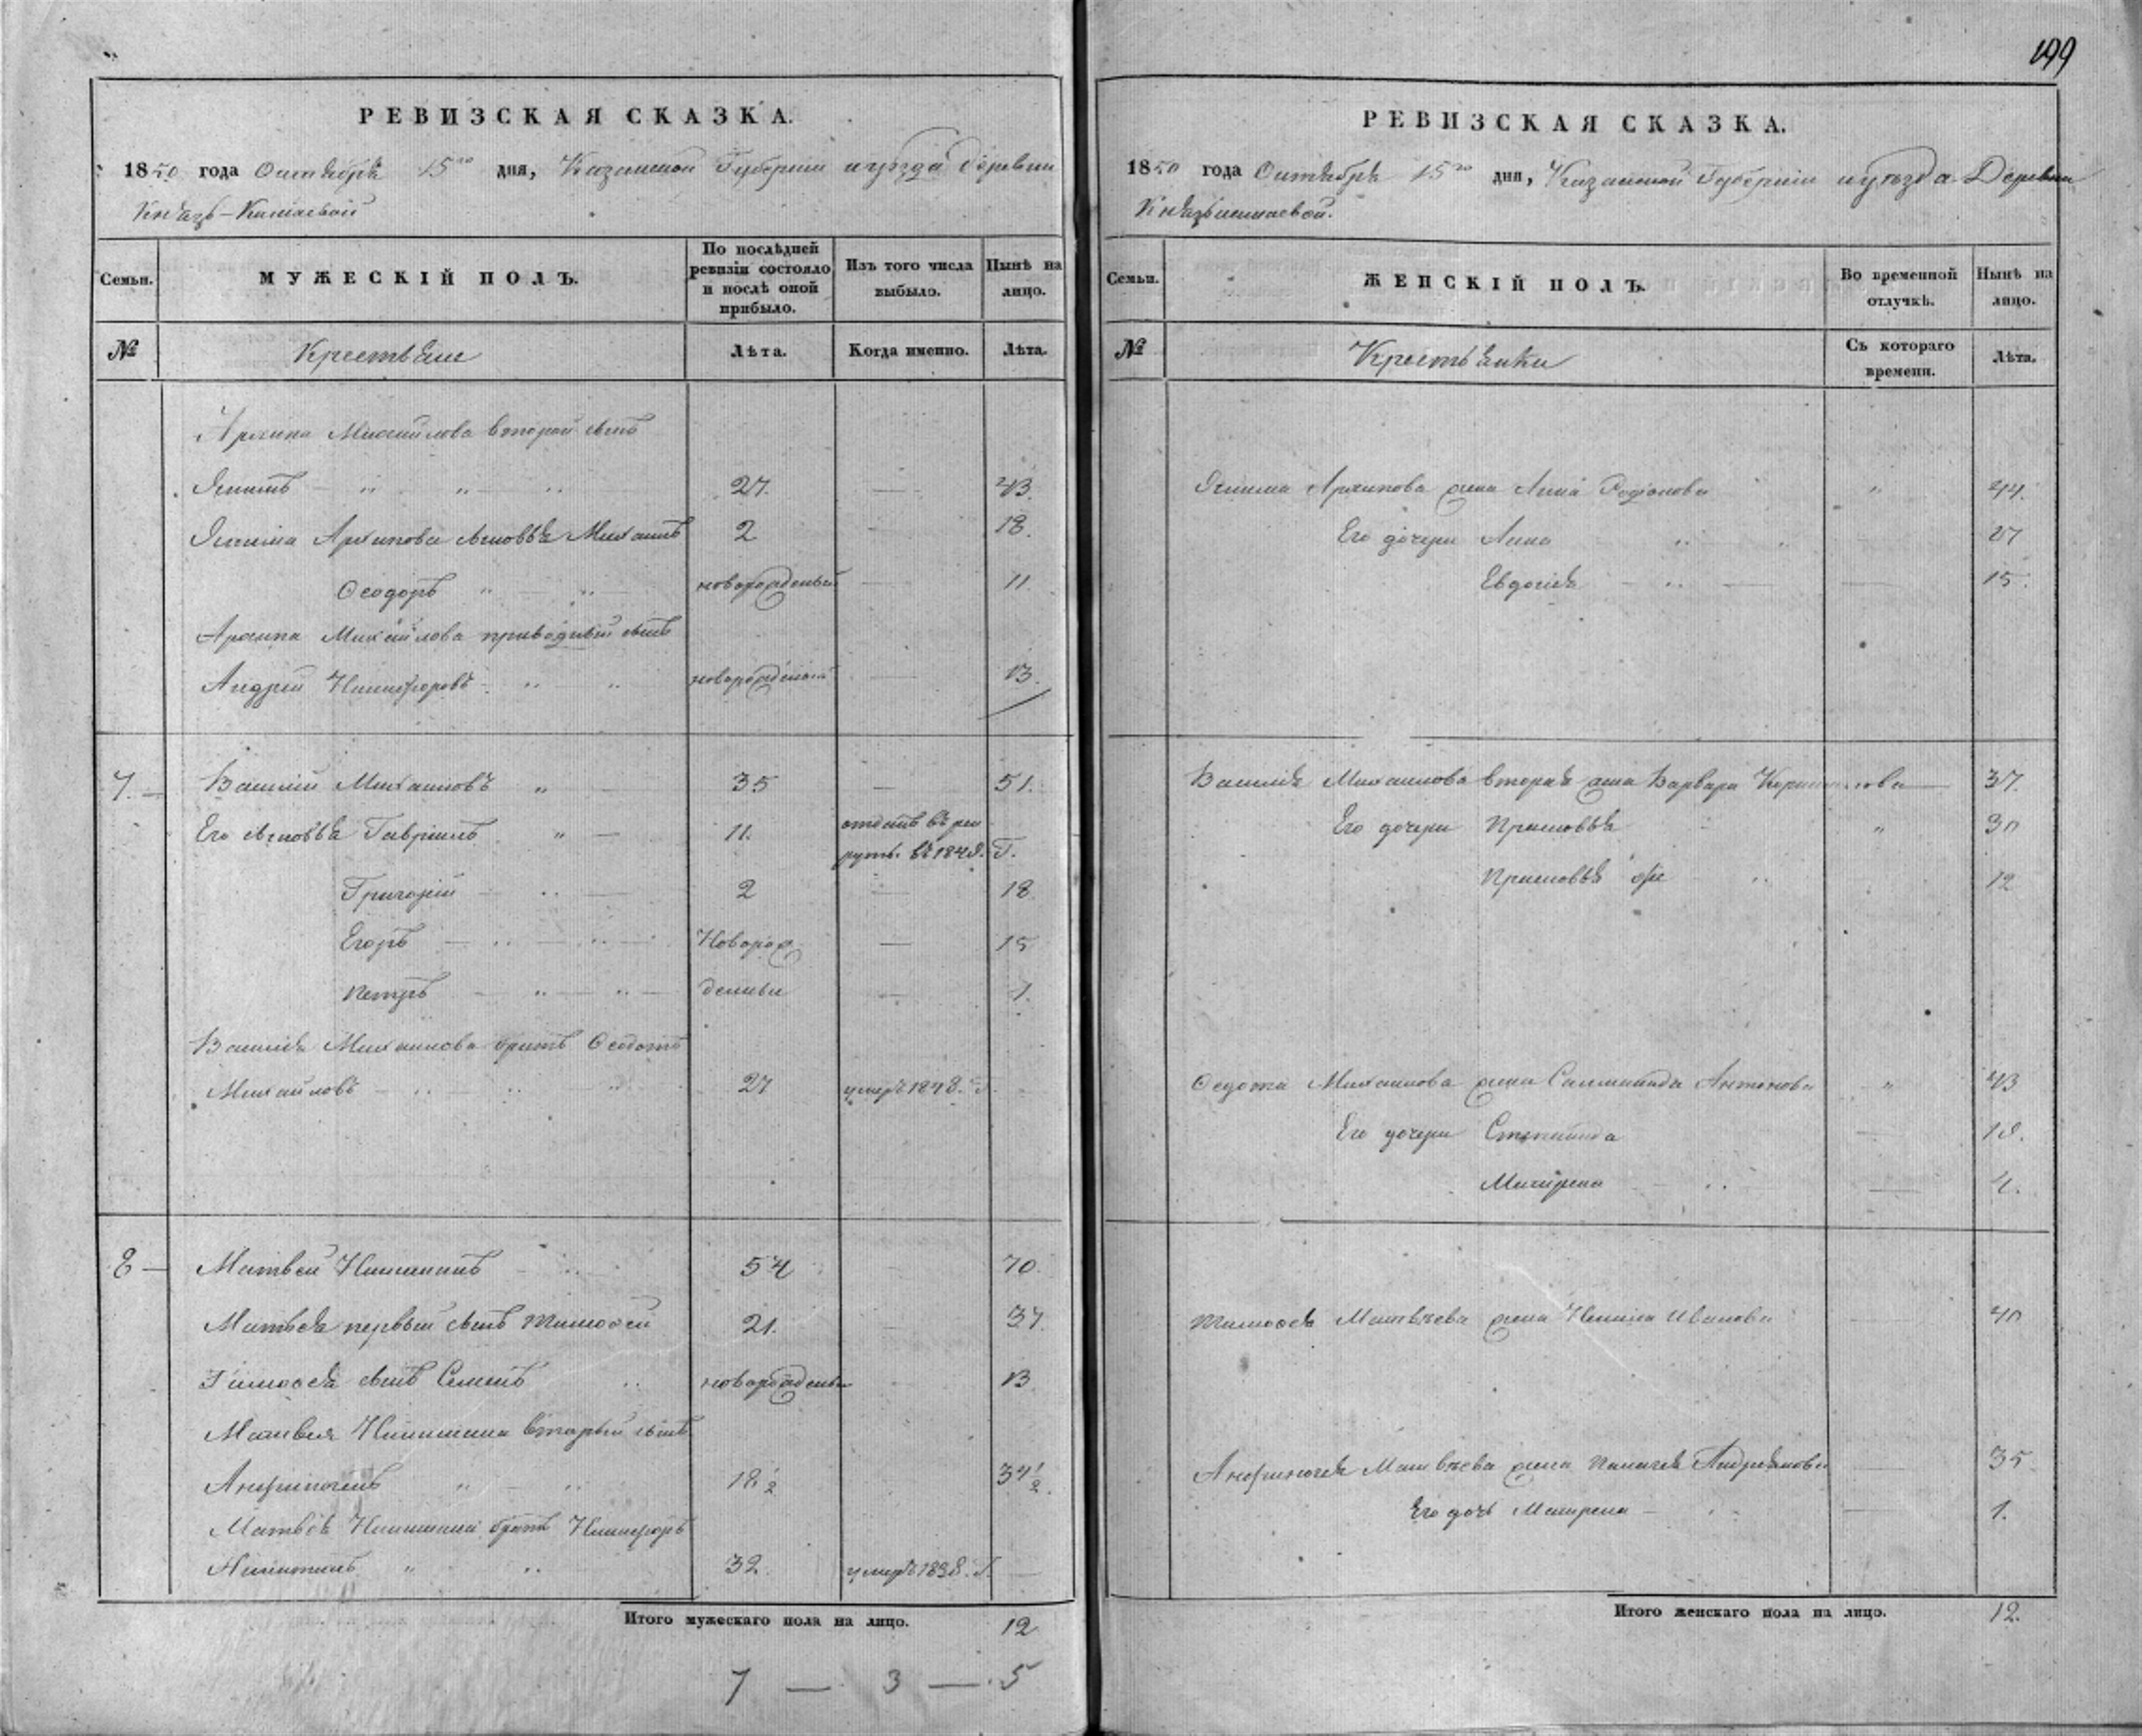 199
РЕВИЗСКАЯ СКАЗКА.
1850 года Октября 15го дня, Казанской Губернiи и уѣзда деревни
Князь-Камаевой
Семьи.
МУЖЕСКIЙ ПОЛЪ.
По послѣдней
ревизiи состояло
и послѣ оной
прибыло.
Изъ того числа
выбыло.
Нынѣ на
лицо.
№
Крестьяне
Лѣта.
Когда именно.
Лѣта.
Архипа Михайлова второй сынъ
Якимъ 27. 43.
Якима Архипова сыновья Михаилъ 2 18.
Ѳеодоръ новорожденый 11
Архипа Михайлова сынъ
Андрей Никифоровъ новорожденый 13.
7. Василiй Михаиловъ 35 51.
Его сыновья Гаврiилъ 11. отданъ въ рек
рутъ въ 1848. Г.
Григорiй 2 18
Егоръ Новорож 15
Петръ денные 1.
Василья Михаилова братъ Ѳедотъ
Михайловъ 27 умеръ 1848. Г.
8 Матвей Никитинъ 54 70.
Матвея первый сынъ Тимоѳей 21. 37.
Тимоѳея сынъ Семенъ новорожденый 13
Матвея Никитина вторый сынъ
18 1/2 34 1/2.
Матвея Никитина братъ Никифоръ
Никитинъ 32. умеръ 1838. Г.
Итого мужескаго пола на лицо. 12
7 — 3 — 5
РЕВИЗСКАЯ СКАЗКА.
1850 года Октября 15го дня, Казанской Губернiи и уѣзда Деревни
Князькамаевой.
Семьи.
ЖЕНСКIЙ ПОЛЪ.
Во временной
отлучкѣ.
Нынѣ на
лицо.
№
Крестьянки
Съ котораго
времени.
Лѣта.
Якима Архипова жена Анна Родiонова 44.
Его дочери Анна 27
Евдокiя 15.
Василья Михаилова вторая жена Варвара 37.
Его дочери Прасковья 30
Прасковья же 12
Ѳедота Михаилова жена Антонова 43
Его дочери 18.
Матрена 4.
Тимоѳея Матвѣева жена Иванова 40
Матвѣева жена Пелагея Андреянова 35
Его дочь Матрена 1.
Итого женскаго пола на лицо. 12.